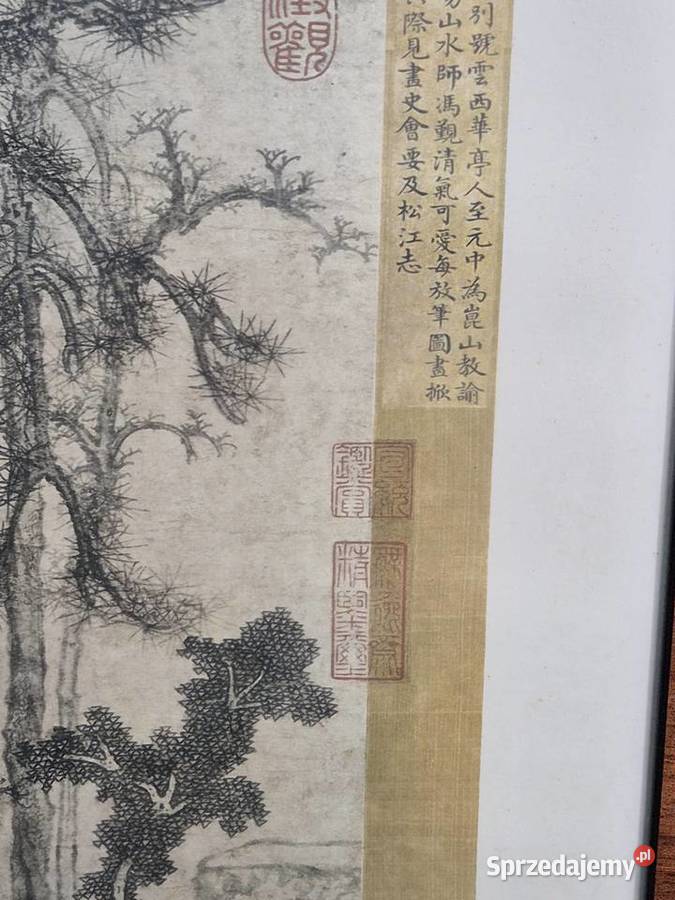 別號雲西華亭人至元中為崑山教諭
山水師馮覲清氣可愛每放筆圖畫掀
際見畫史會要及松江志
觀
宣統
鑑賞
無逸齋
精鑑璽
Sprzedajemy.pl